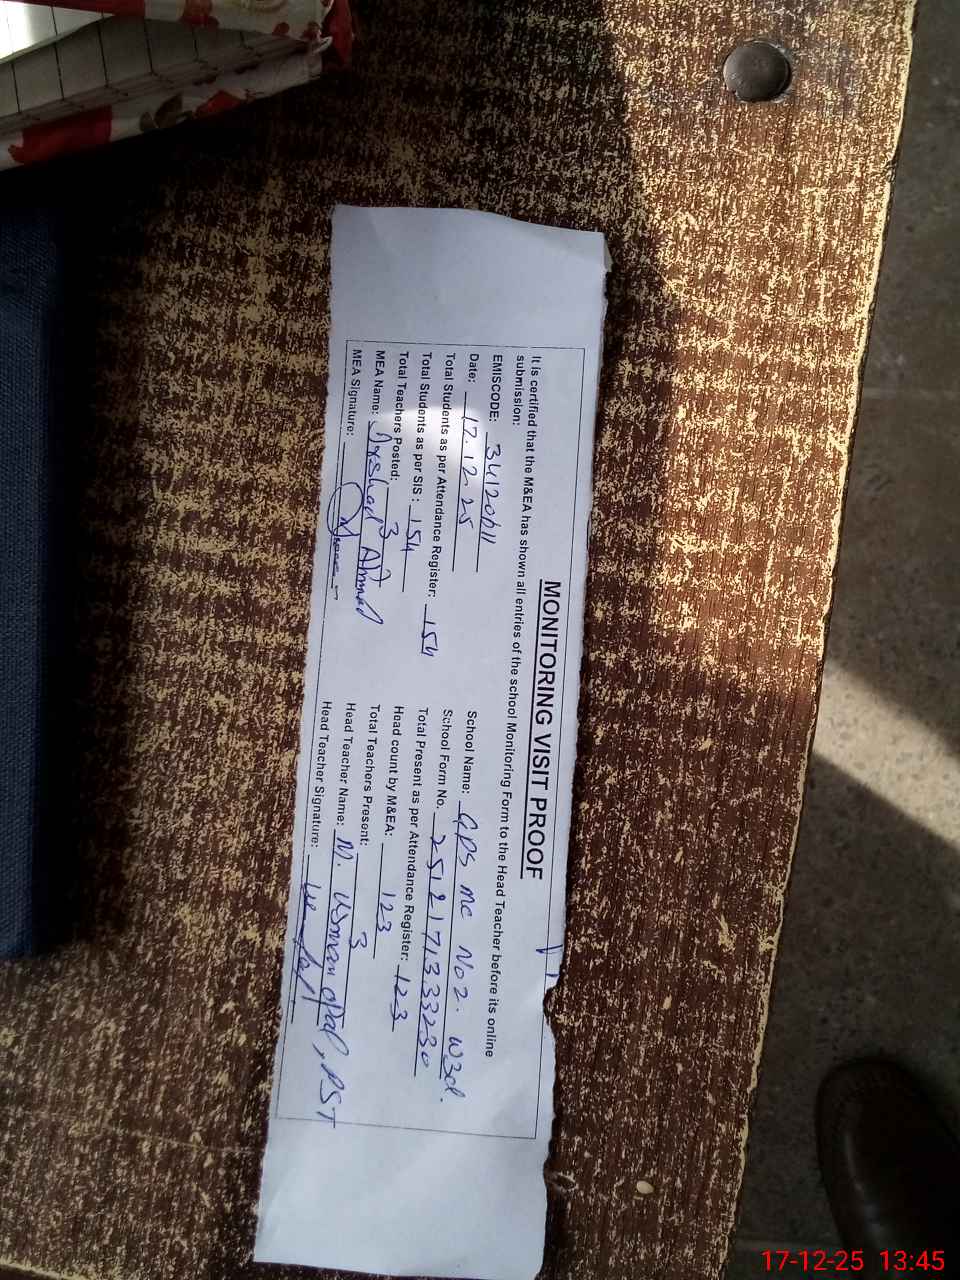 MONITORING VISIT PROOF
It is certified that the M&EA has shown all entries of the school Monitoring Form to the Head Teacher before its online
submission:
EMISCODE: 34120611
School Name: GPS MC No 2. WZd.
Date: 17.12.25
School Form No. 2512171333230
Total Students as per Attendance Register: 154
Total Present as per Attendance Register: 123
Total Students as per SIS : 154
Head count by M&EA: 123
Total Teachers Posted: 3
Total Teachers Present: 3
MEA Name: Arshad Ahmed
Head Teacher Name: M. Usman , PST
MEA Signature:
Head Teacher Signature:
17-12-25 13:45